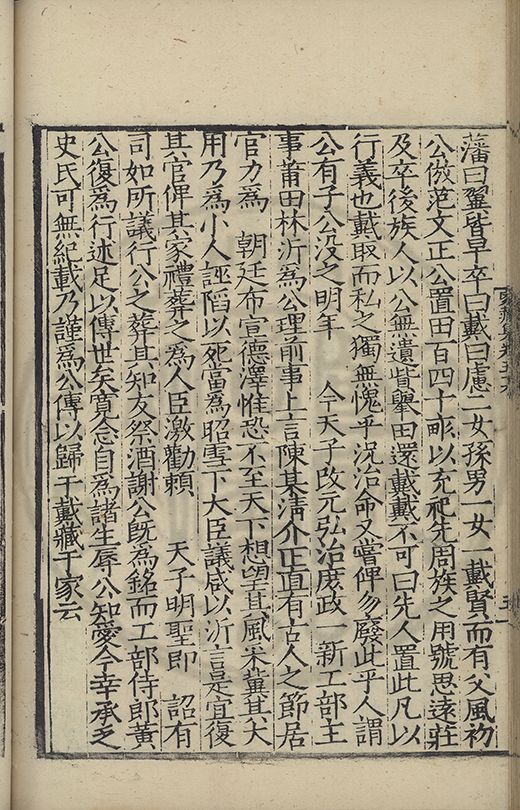 藩曰翼皆早卒曰戴曰處二女孫男一女一戴賢而有父風初
公倣范文正公置田百四十畝以充祀先周族之用號思遠莊
及卒後族人以公無遺貲舉田還戴戴不可曰先人置此凡以
行義也戴取而私之獨無愧乎況治命又嘗俾勿廢此乎人謂
公有子公沒之明年　今天子改元弘治庶政一新工部主
事莆田林沂為公理前事上言陳某清介正直有古人之節居
官力為　朝廷布宣德澤惟恐不至天下想望其風采冀其大
用乃為小人誣陷以死當為昭雪下大臣議咸以沂言是宜復
其官俾其家禮葬之為人臣激勸賴　天子明聖即　詔有
司如所議行公之葬其知友祭酒謝公既為銘而工部侍郎黃
公復為行述足以傳世矣寬念自為諸生辱公知愛今幸承乏
史氏可無紀載乃謹為公傳以歸于戴藏于家云